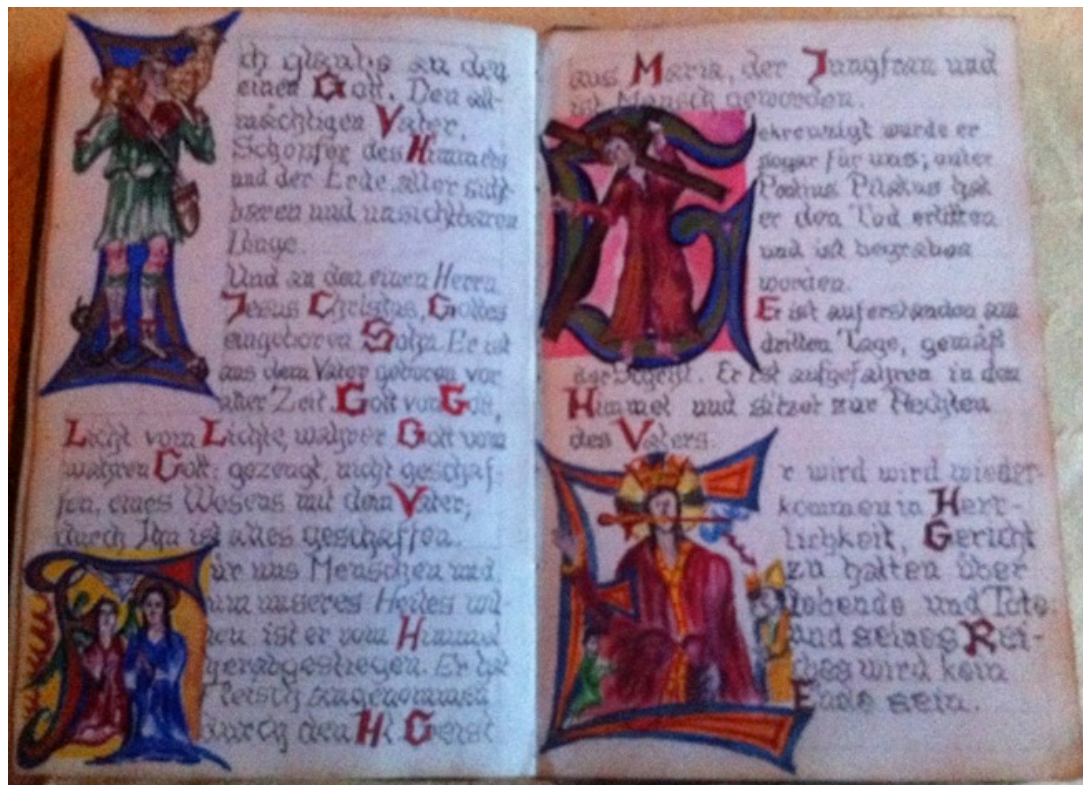 Ich glaube an den
einen Gott. Den all-
mächtigen Vater,
Schöpfer des Himmels
und der Erde, aller sicht-
baren und unsichtbaren
Dinge.
Und an den einen Herrn
Jesus Christus, Gottes
eingeboren Sohn. Er ist
aus dem Vater geboren vor
aller Zeit. Gott von Gott,
Licht vom Lichte, wahrer Gott vom
wahren Gott; gezeugt, nicht geschaf-
fen, eines Wesens mit dem Vater;
durch Ihn ist alles geschaffen.
Für uns Menschen und
um unseres Heiles wil-
len ist er vom Himmel
herabgestiegen. Er hat
Fleisch angenommen
durch den Hl. Geist
aus Maria, der Jungfrau und
ist Mensch geworden.
Gekreuzigt wurde er
sogar für uns; unter
Pontius Pilatus hat
er den Tod erlitten
und ist begraben
worden.
Er ist auferstanden am
dritten Tage, gemäß
der Schrift. Er ist aufgefahren in den
Himmel und sitzet zur Rechten
des Vaters.
Er wird wird wieder-
kommen in Herr-
lichkeit, Gericht
zu halten über
Lebende und Tote.
Und seines Rei-
ches wird kein
Ende sein.